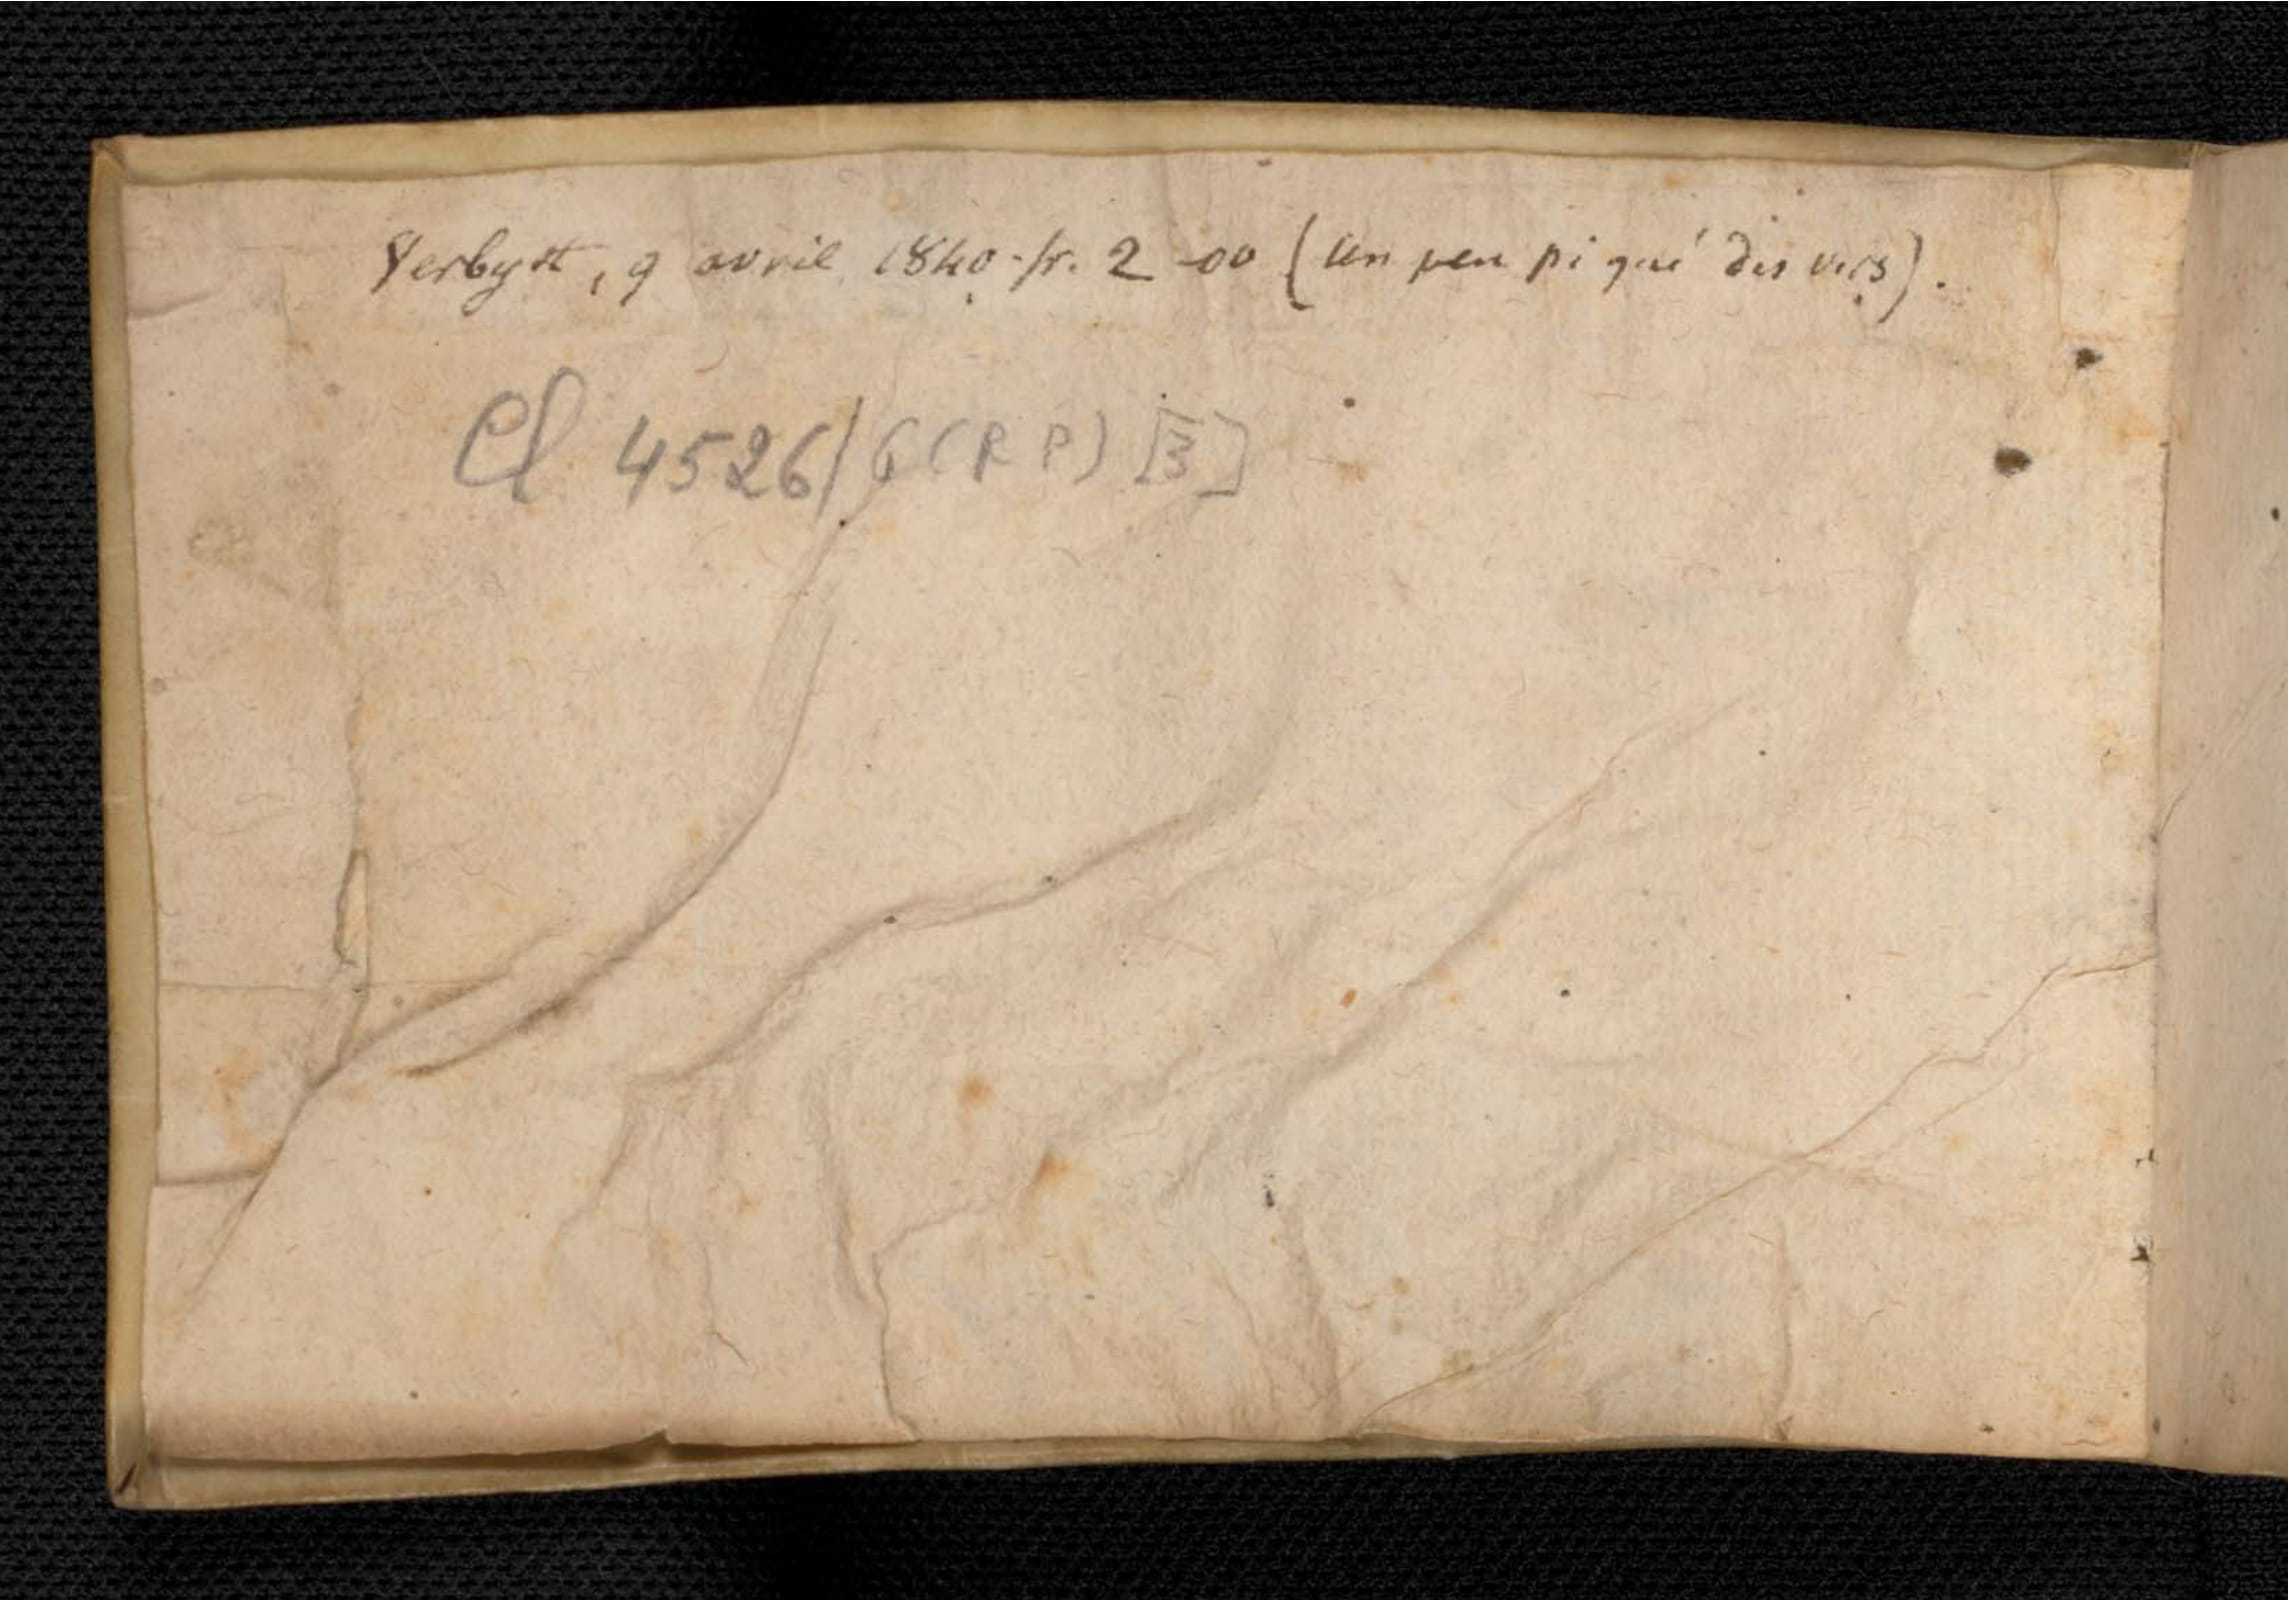 Verbyst, 9 avril 1840. fr. 2-00 (un peu piqué des vers).
Cl 4526/6 (RP) [3]